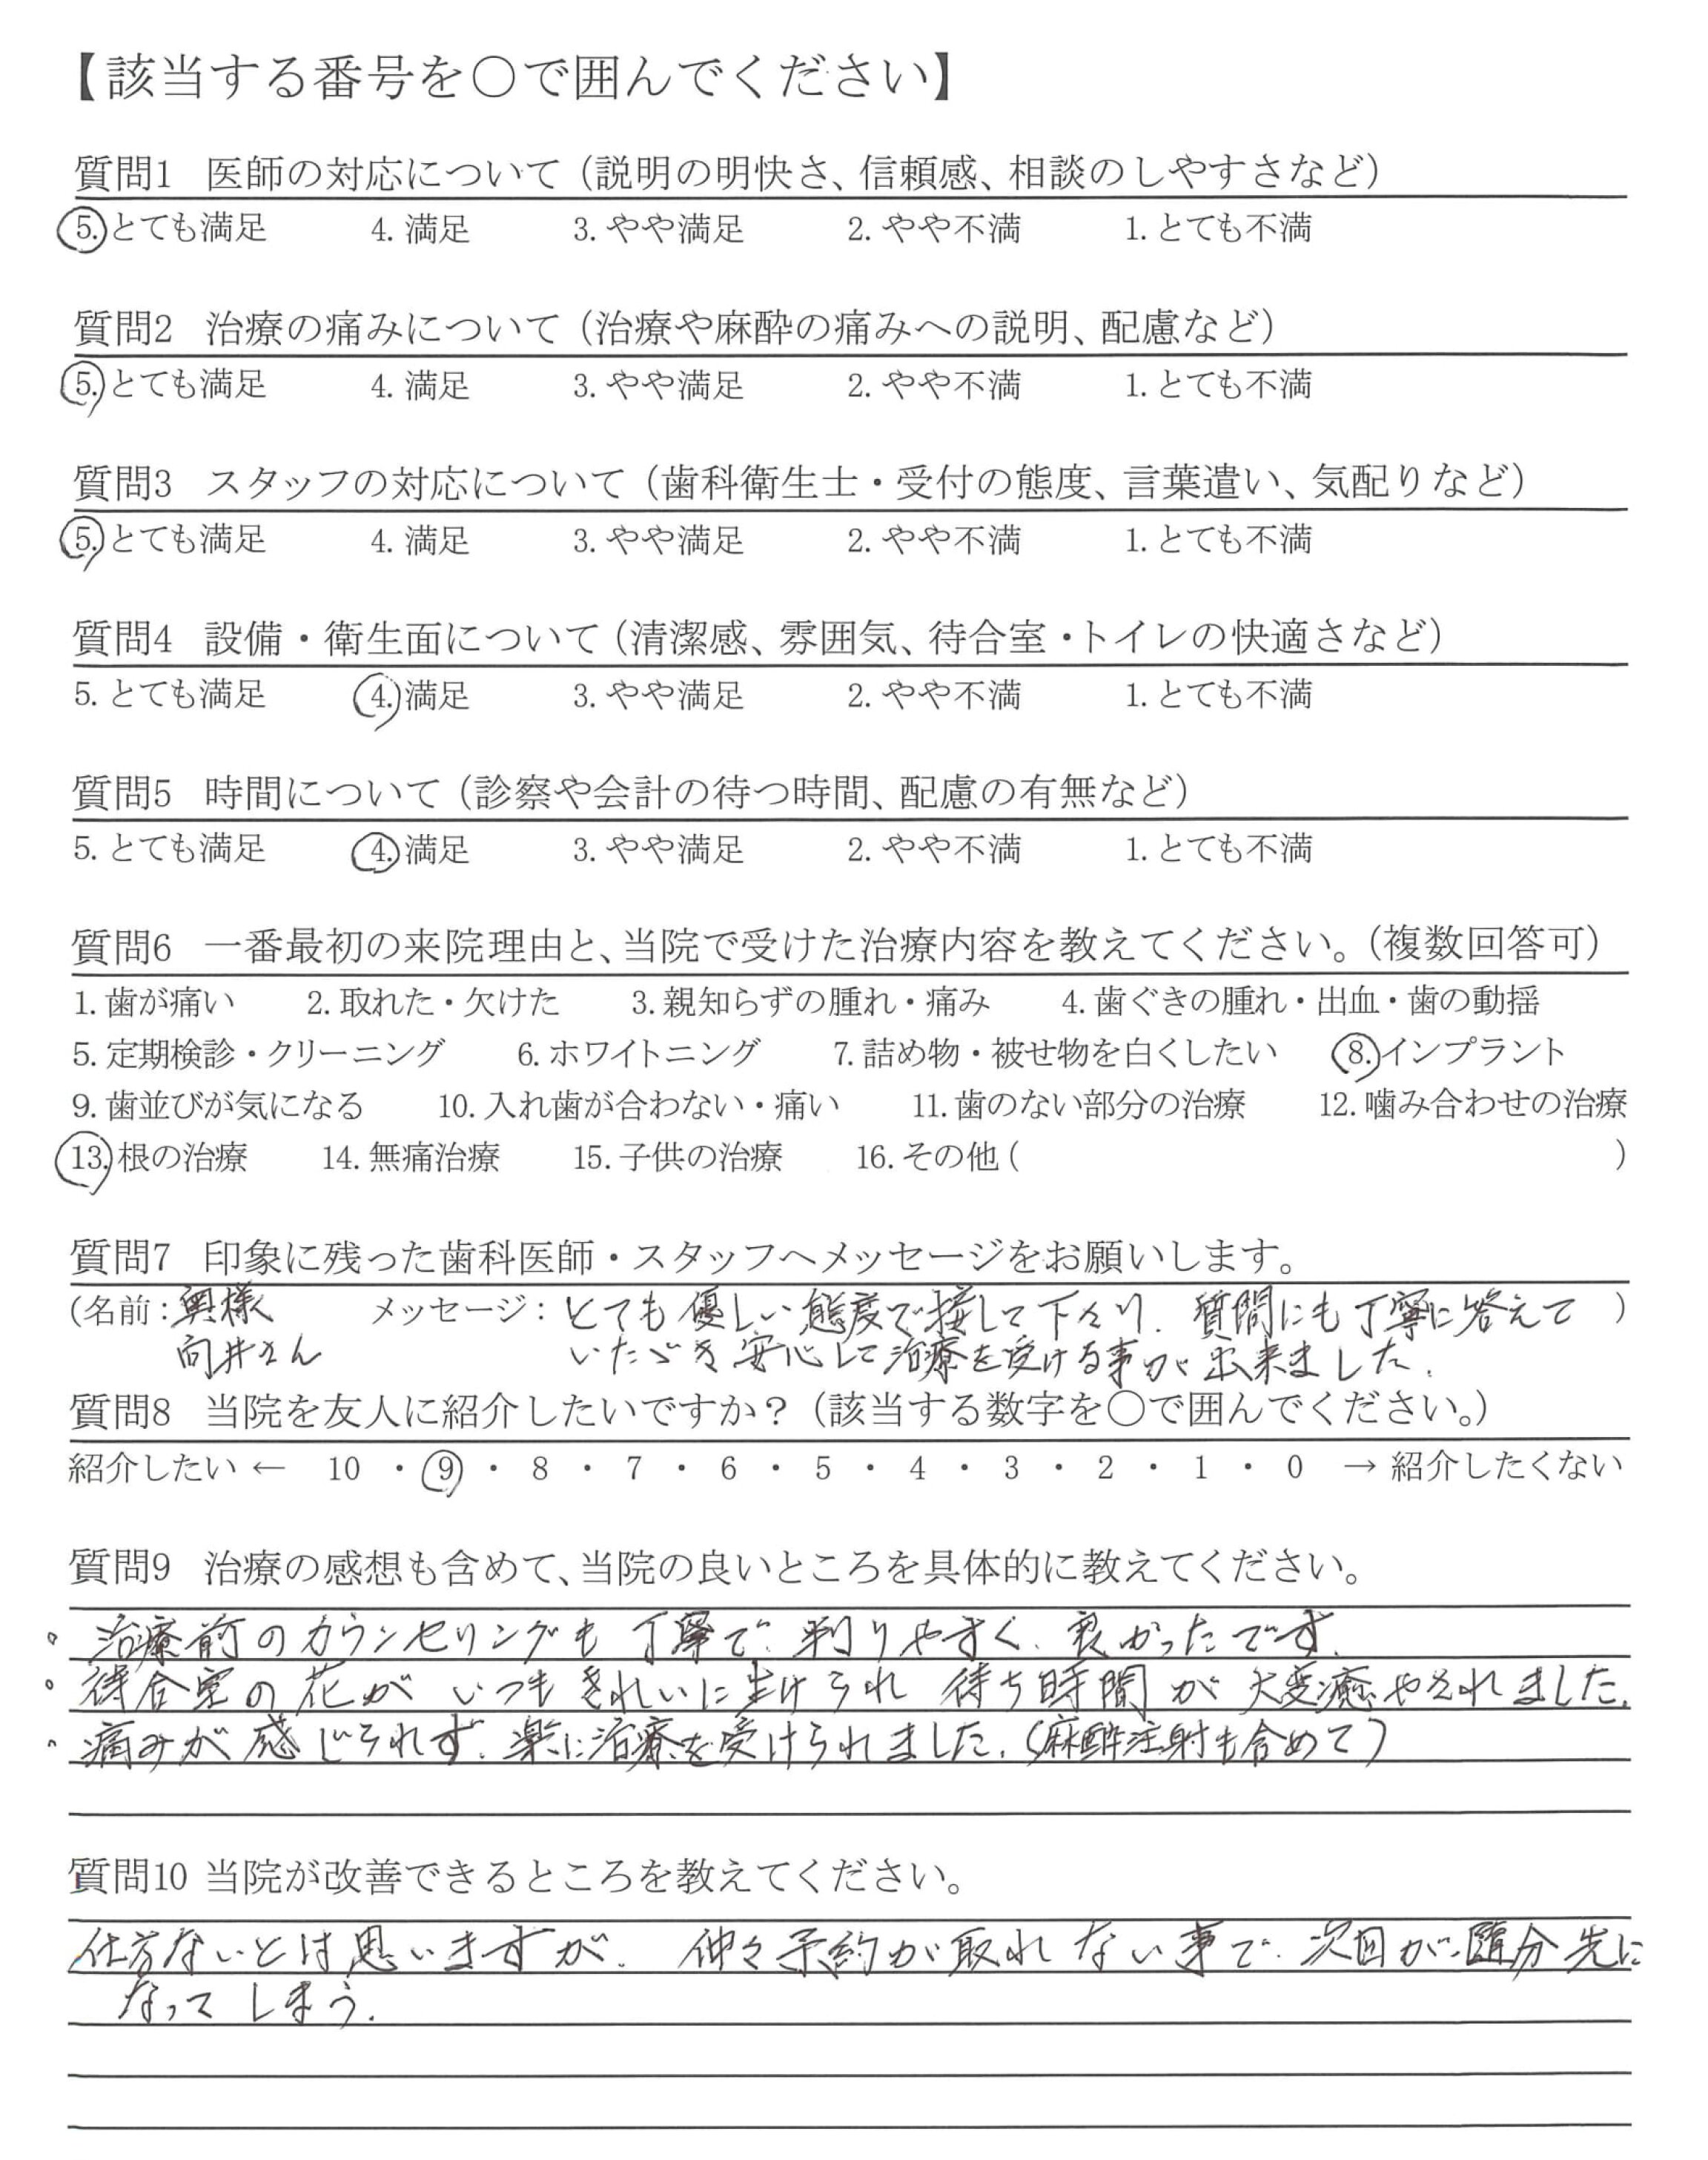 【該当する番号を○で囲んでください】
質問1 医師の対応について（説明の明快さ、信頼感、相談のしやすさなど）
5. とても満足 4. 満足 3. やや満足 2. やや不満 1. とても不満
質問2 治療の痛みについて（治療や麻酔の痛みへの説明、配慮など）
5. とても満足 4. 満足 3. やや満足 2. やや不満 1. とても不満
質問3 スタッフの対応について（歯科衛生士・受付の態度、言葉遣い、気配りなど）
5. とても満足 4. 満足 3. やや満足 2. やや不満 1. とても不満
質問4 設備・衛生面について（清潔感、雰囲気、待合室・トイレの快適さなど）
5. とても満足 4. 満足 3. やや満足 2. やや不満 1. とても不満
質問5 時間について（診察や会計の待つ時間、配慮の有無など）
5. とても満足 4. 満足 3. やや満足 2. やや不満 1. とても不満
質問6 一番最初の来院理由と、当院で受けた治療内容を教えてください。（複数回答可）
1. 歯が痛い 2. 取れた・欠けた 3. 親知らずの腫れ・痛み 4. 歯ぐきの腫れ・出血・歯の動揺
5. 定期検診・クリーニング 6. ホワイトニング 7. 詰め物・被せ物を白くしたい 8. インプラント
9. 歯並びが気になる 10. 入れ歯が合わない・痛い 11. 歯のない部分の治療 12. 噛み合わせの治療
13. 根の治療 14. 無痛治療 15. 子供の治療 16. その他（ ）
質問7 印象に残った歯科医師・スタッフへメッセージをお願いします。
（名前：奥様 メッセージ：とても優しい態度で接して下さり、質問にも丁寧に答えて ）
向井さん いただき安心して治療を受ける事が出来ました。
質問8 当院を友人に紹介したいですか？（該当する数字を○で囲んでください。）
紹介したい ← 10 ・ 9 ・ 8 ・ 7 ・ 6 ・ 5 ・ 4 ・ 3 ・ 2 ・ 1 ・ 0 → 紹介したくない
質問9 治療の感想も含めて、当院の良いところを具体的に教えてください。
。治療前のカウンセリングも丁寧で、判りやすく、良かったです。
。待合室の花がいつもきれいに生けられ 待ち時間が大変癒やされました。
。痛みが感じられず、楽に治療を受けられました。（麻酔注射も含めて）
質問10 当院が改善できるところを教えてください。
仕方ないとは思いますが、仲々予約が取れない事で、次回が随分先に
なってしまう。